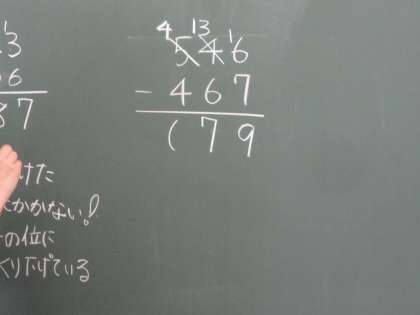 1
3
6
87
4 13 1
546
- 467
(79
けた
にかかない!
の位に
くり下げている